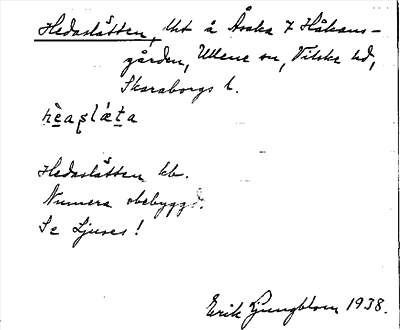 Hedaslätten, tht å Åsaka 7 Håkans-
gården, Uttene sn, Vilske hd,
Skaraborgs l.
hèaslǽta
Hedaslätten hb.
Numera obebyggd.
Se Ljuses!
Erik Ljungblom 1938.